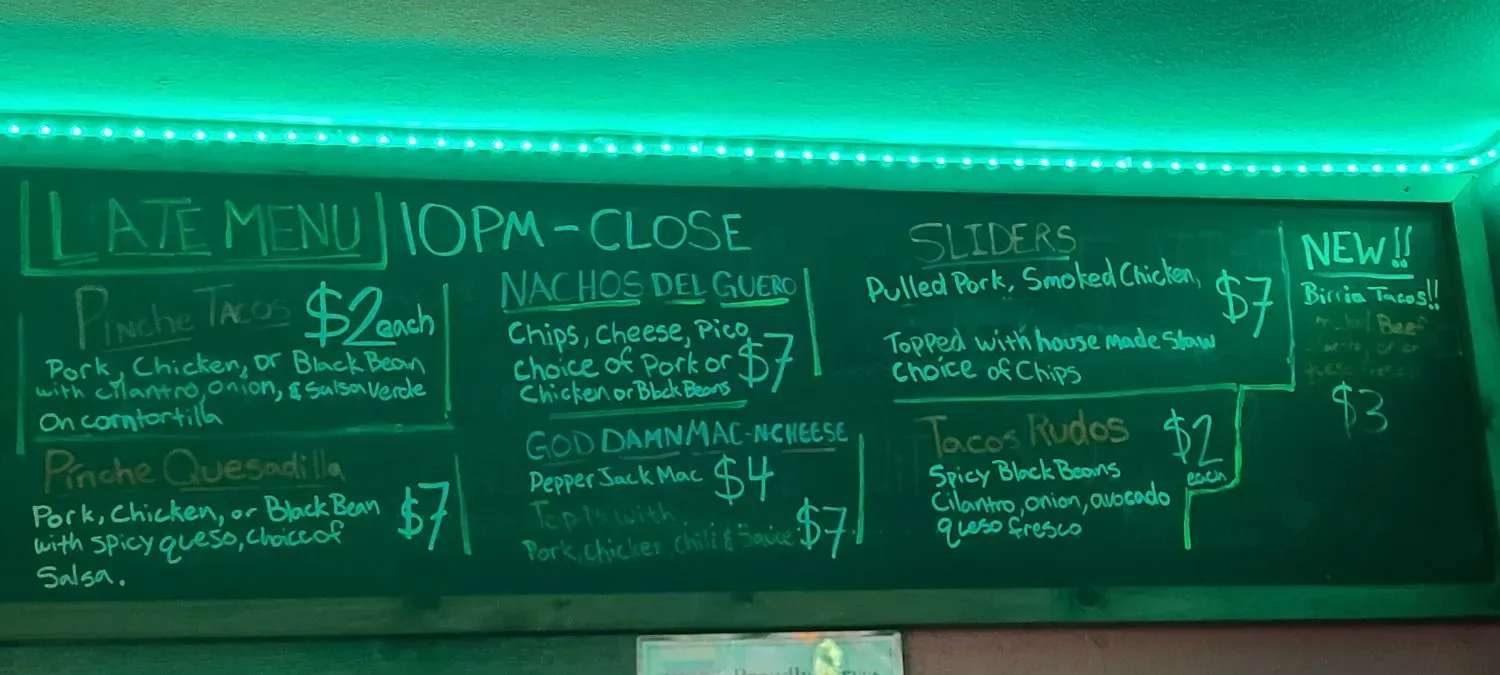 LATE MENU 10PM - CLOSE
Pinche Tacos $2 each
Pork, Chicken, or Black Bean
with cilantro, onion, & Salsa Verde
on corn tortilla
Pinche Quesadilla
Pork, Chicken, or Black Bean $7
with spicy queso, choice of
Salsa.
NACHOS DEL GUERO
Chips, Cheese, Pico
choice of Pork or $7
Chicken or Black Beans
GOD DAMN MAC-NCHEESE
Pepper Jack Mac $4
Top is with
Pork, chicken, chili & Sauce $7
SLIDERS
Pulled Pork, Smoked Chicken, $7
Topped with house made Slaw
choice of Chips
Tacos Rudos $2
each
Spicy Black Beans
Cilantro, onion, avocado
queso fresco
NEW!!
Birria Tacos!!
Beef
queso fresco
$3